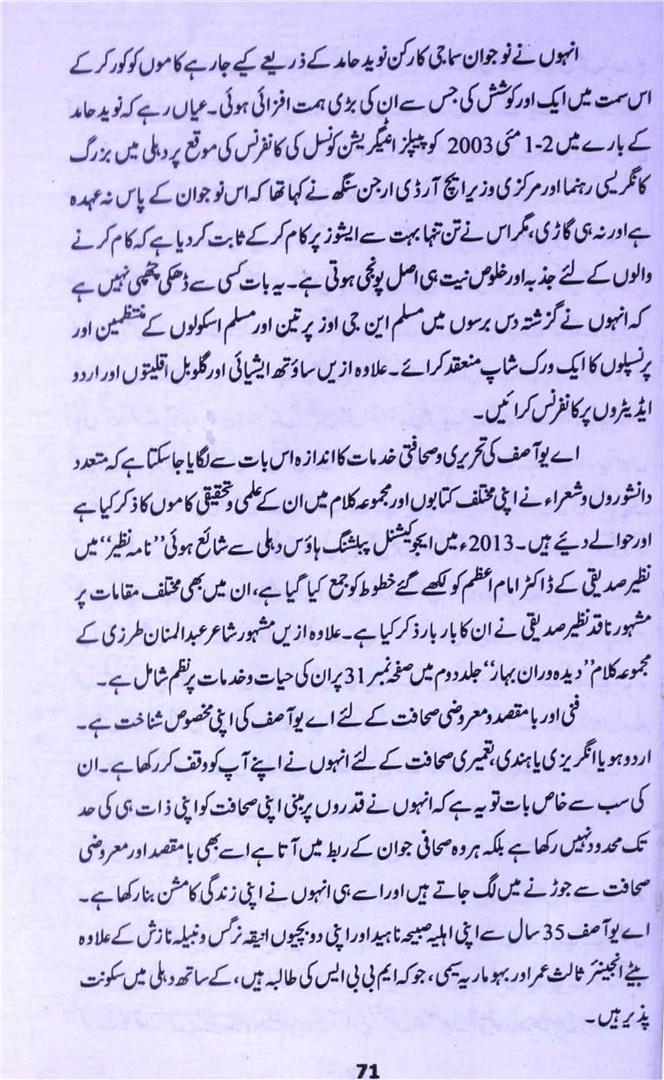 انہوں نے نوجوان سماجی کارکن نوید حامد کے ذریعے کیے جارہے کاموں کو کور کرکے
اس سمت میں ایک اور کوشش کی جس سے ان کی بڑی ہمت افزائی ہوئی۔ عیاں رہے کہ نوید حامد
کے بارے میں 2-1 مئی 2003 کو پیپلز انٹیگریشن کونسل کی کانفرنس کی موقع پر دہلی میں بزرگ
کانگریسی رہنما اور مرکزی وزیر ایچ آر ڈی ارجن سنگھ نے کہا تھا کہ اس نوجوان کے پاس نہ عہدہ
ہے اور نہ ہی گاڑی، مگر اس نے تن تنہا بہت سے ایشوز پر کام کرکے ثابت کردیا ہے کہ کام کرنے
والوں کے لئے جذبہ اور خلوص نیت ہی اصل پونجی ہوتی ہے۔ یہ بات کسی سے ڈھکی چھپی نہیں ہے
کہ انہوں نے گزشتہ دس برسوں میں مسلم این جی اوز پر تین اور مسلم اسکولوں کے منتظمین اور
پرنسپلوں کا ایک ورک شاپ منعقد کرائے۔ علاوہ ازیں ساؤتھ ایشیائی اور گلوبل اقلیتوں اور اردو
ایڈیٹروں پر کانفرنس کرائیں۔
اے یو آصف کی تحریری و صحافتی خدمات کا اندازہ اس بات سے لگایا جاسکتا ہے کہ متعدد
دانشوروں و شعراء نے اپنی مختلف کتابوں اور مجموعہ کلام میں ان کے علمی و تحقیقی کاموں کا ذکر کیا ہے
اور حوالے دیئے ہیں۔ 2013ء میں ایجوکیشنل پبلشنگ ہاؤس دہلی سے شائع ہوئی ’’نامہ نظیر‘‘ میں
نظیر صدیقی کے ڈاکٹر امام اعظم کو لکھے گئے خطوط کو جمع کیا گیا ہے، ان میں بھی مختلف مقامات پر
مشہور ناقد نظیر صدیقی نے ان کا بار بار ذکر کیا ہے۔ علاوہ ازیں مشہور شاعر عبدالمنان طرزی کے
مجموعہ کلام ’’دیدہ وران بہار‘‘ جلد دوم میں صفحہ نمبر 31 پر ان کی حیات و خدمات پر نظم شامل ہے۔
فنی اور بامقصد و معروضی صحافت کے لئے اے یو آصف کی اپنی مخصوص شناخت ہے۔
اردو ہو یا انگریزی یا ہندی، تعمیری صحافت کے لئے انہوں نے اپنے آپ کو وقف کر رکھا ہے۔ ان
کی سب سے خاص بات تو یہ ہے کہ انہوں نے قدروں پر مبنی اپنی صحافت کو اپنی ذات ہی کی حد
تک محدود نہیں رکھا ہے بلکہ ہر وہ صحافی جو ان کے ربط میں آتا ہے اسے بھی بامقصد اور معروضی
صحافت سے جوڑنے میں لگ جاتے ہیں اور اسے ہی انہوں نے اپنی زندگی کا مشن بنا رکھا ہے۔
اے یو آصف 35 سال سے اپنی اہلیہ صبیحہ ناہید اور اپنی دو بچیوں انیقہ نرگس و نبیلہ نازش کے علاوہ
بیٹے انجینئر ثالث عمر اور بہو ماریہ سیمی، جو کہ ایم بی بی ایس کی طالبہ ہیں، کے ساتھ دہلی میں سکونت
پذیر ہیں۔
71